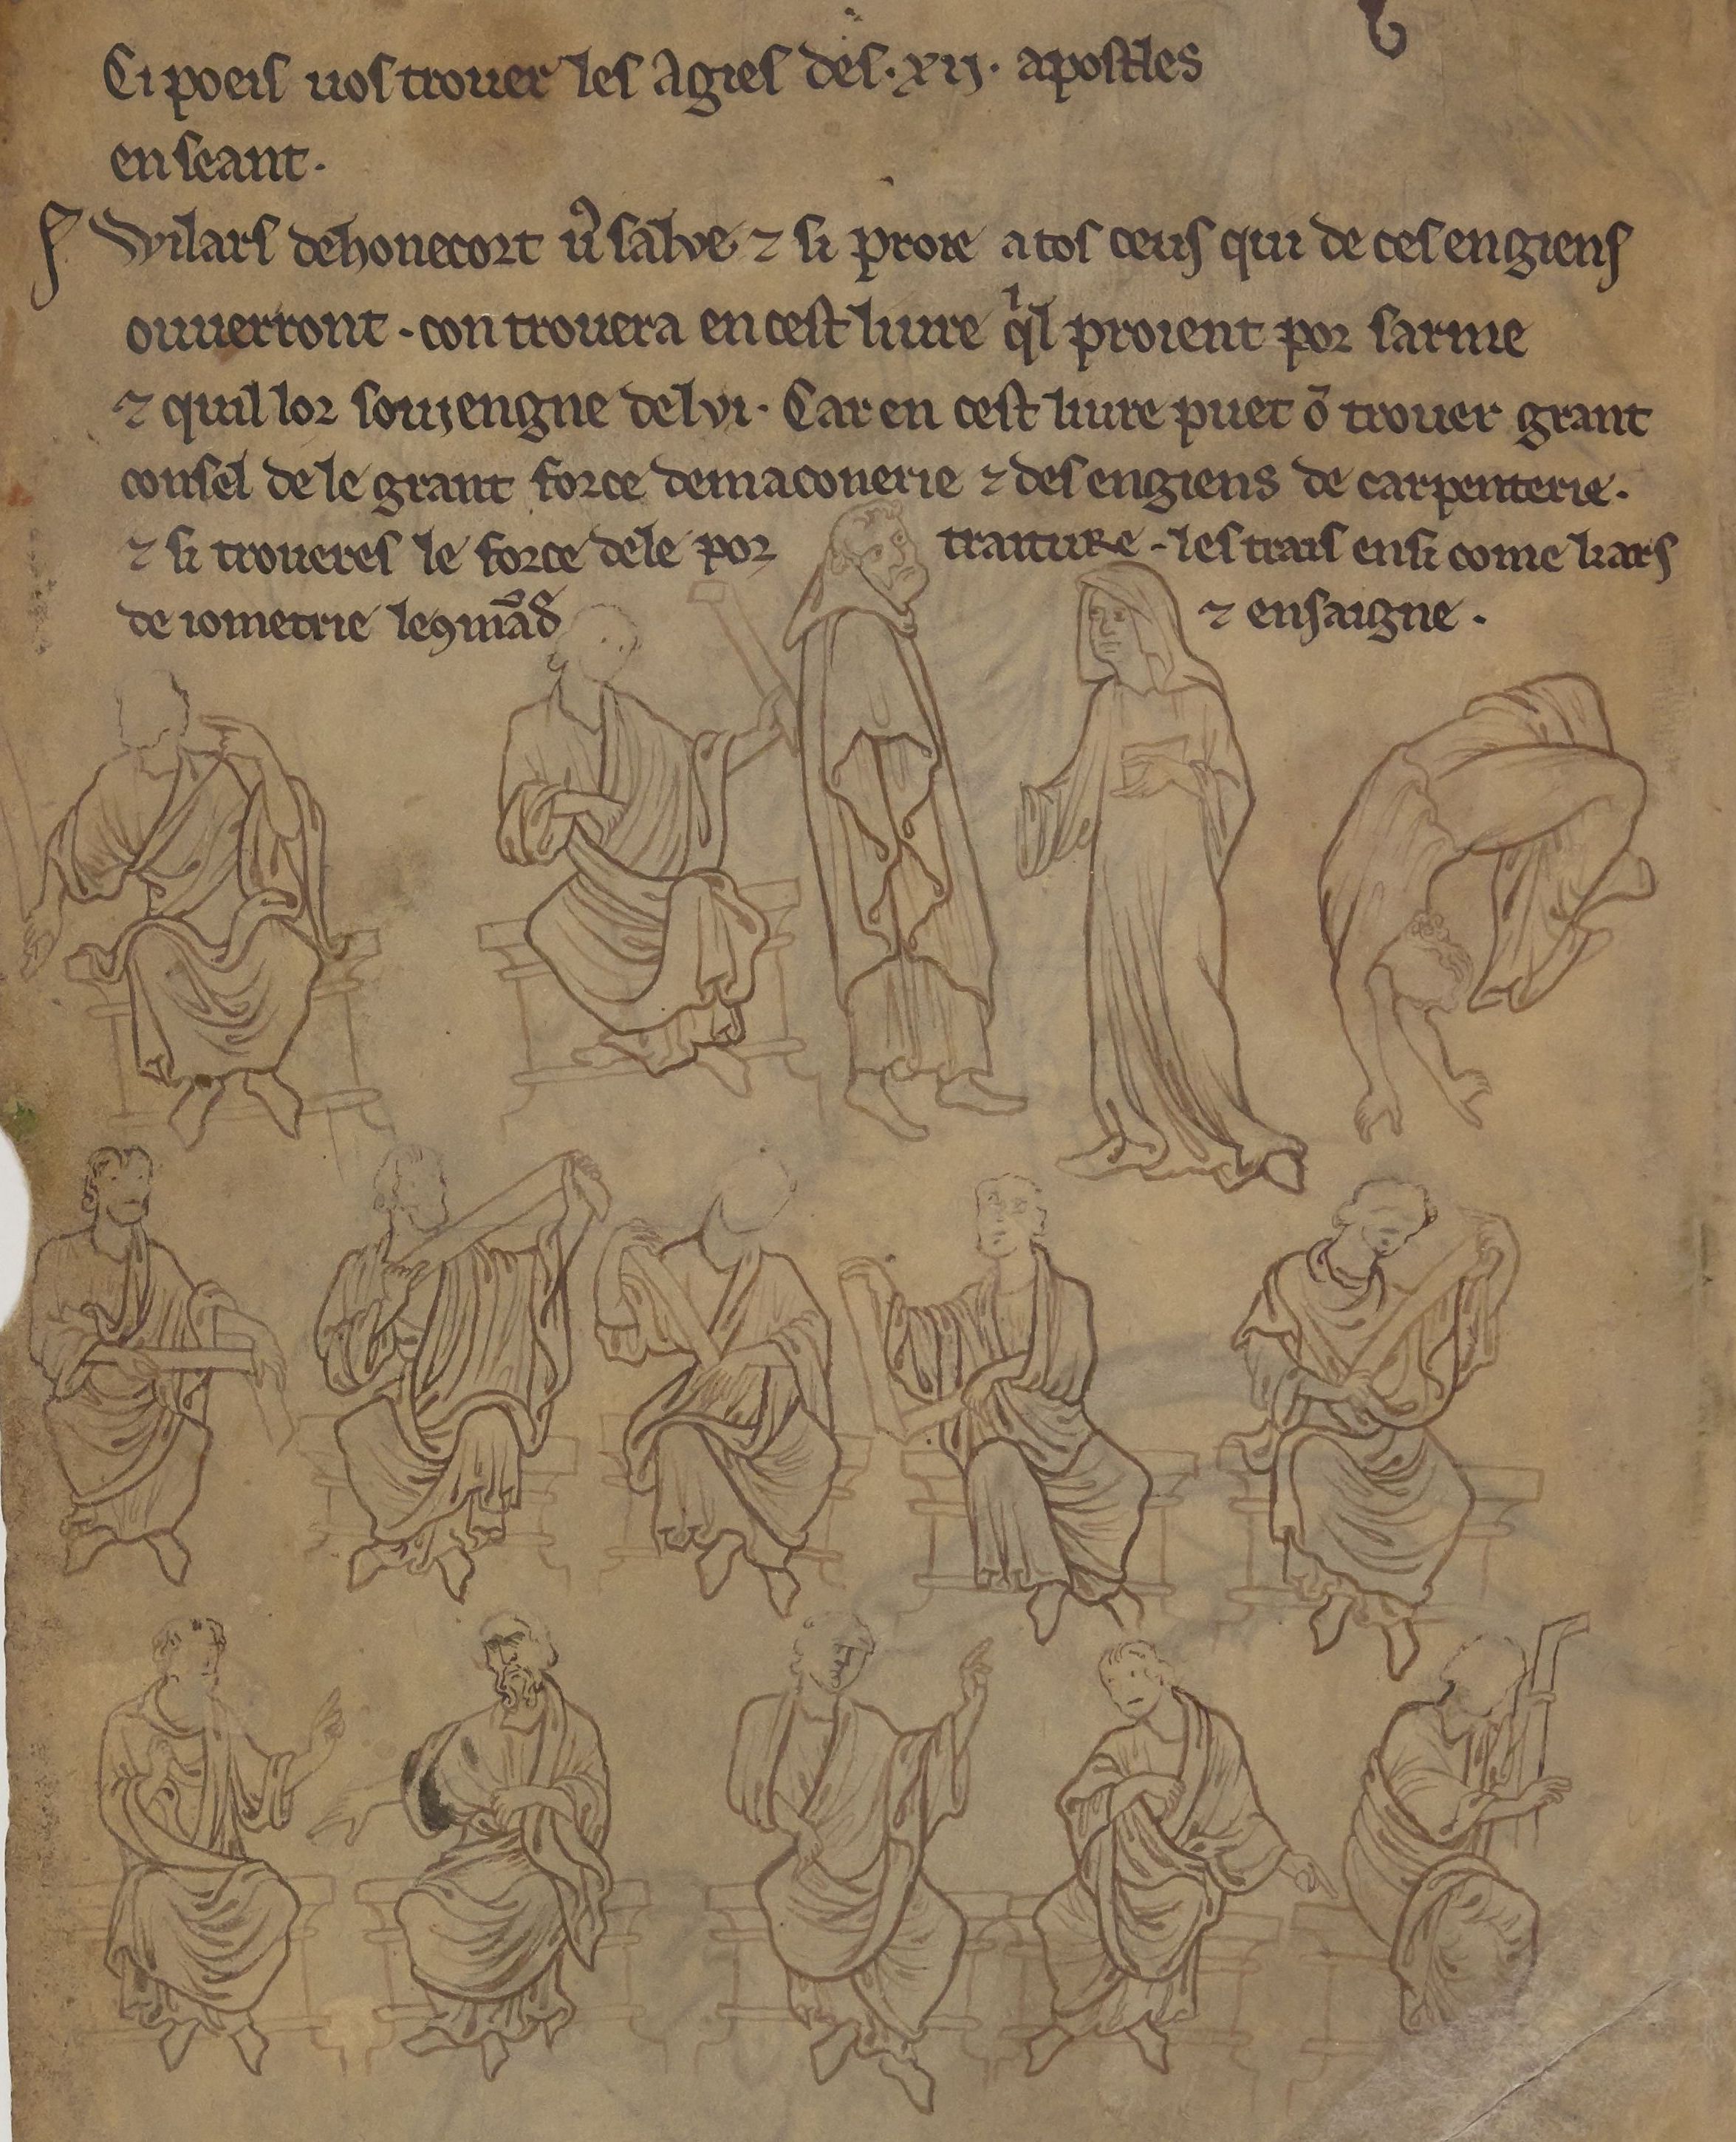 Ci poeis uos trouer les agies des .xij. apostles
en seant.
Wilars dehonecort v̾ salve ⁊ si proie a tos ceus qui de ces engiens
ouuerront . con trouera en cest liure qⁱl proient por sarme
⁊ quil lor souiengne de lvi . Car en cest liure puet ō trouer grant
consel de le grant force de maconerie ⁊ des engiens de carpenterie .
⁊ si troueres le force de le por traiture . les trais ensi come li ars
de iometrie le ⁊ ensaigne .